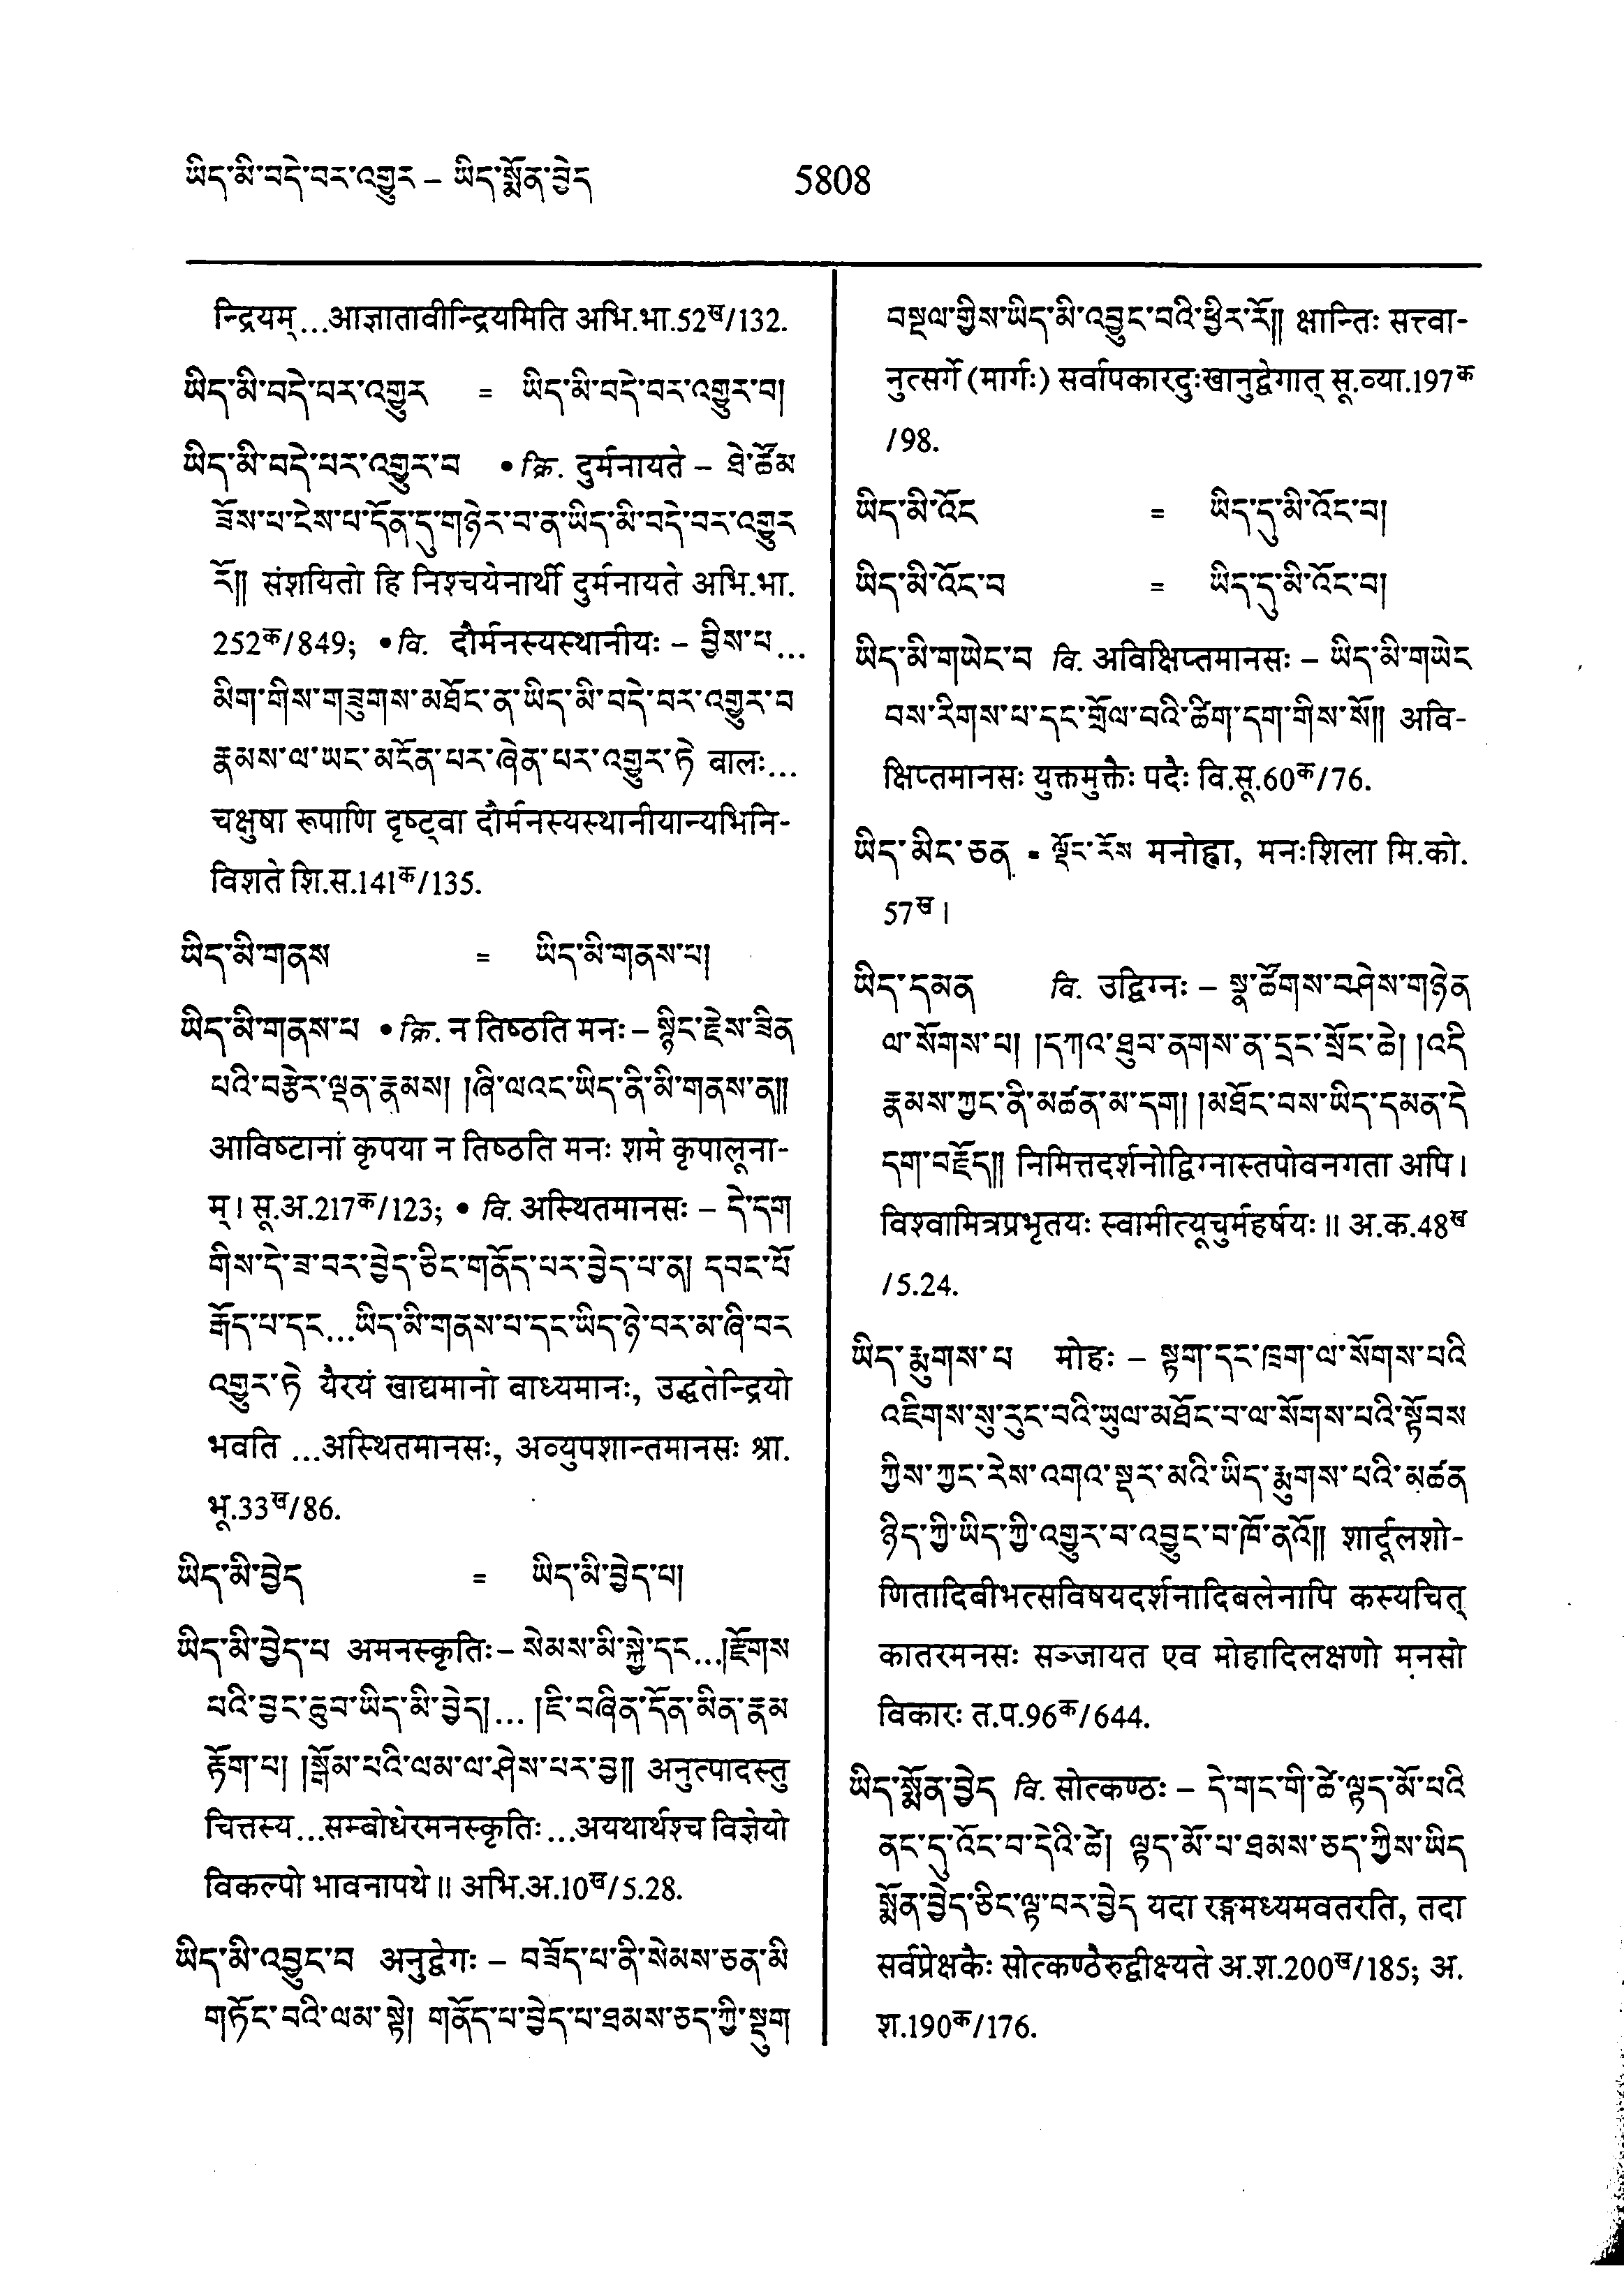 ཡིད་མི་བདེ་བར་འགྱུར – ཡིད་སྨོན་བྱེད
5808
न्द्रियम्...आज्ञातावीन्द्रियमिति अभि.भा.52ख/132.
ཡིད་མི་བདེ་བར་འགྱུར = ཡིད་མི་བདེ་བར་འགྱུར་བ།
ཡིད་མི་བདེ་བར་འགྱུར་བ • क्रि. दुर्मनायते – ཐེ་ཚོམ
ཟོས་པ་ངེས་པ་དོན་དུ་གཉེར་བ་ན་ཡིད་མི་བདེ་བར་འགྱུར
རོ།། संशयितो हि निश्चयेनार्थी दुर्मनायते अभि.भा.
252क/849; • वि. दौर्मनस्यस्थानीयः – བྱིས་པ...
མིག་གིས་གཟུགས་མཐོང་ན་ཡིད་མི་བདེ་བར་འགྱུར་བ
རྣམས་ལ་ཡང་མངོན་པར་ཞེན་པར་འགྱུར་ཏེ बालः...
चक्षुषा रूपाणि दृष्ट्वा दौर्मनस्यस्थानीयान्यभिनि-
विशते शि.स.141क/135.
ཡིད་མི་གནས = ཡིད་མི་གནས་པ།
ཡིད་མི་གནས་པ • क्रि. न तिष्ठति मनः – སྙིང་རྗེས་ཟིན
པའི་བརྩེར་ལྡན་རྣམས། །ཞི་ལའང་ཡིད་ནི་མི་གནས་ན།།
आविष्टानां कृपया न तिष्ठति मनः शमे कृपालूना-
म्। सू.अ.217क/123; • वि. अस्थितमानसः – དེ་དག
གིས་དེ་ཟ་བར་བྱེད་ཅིང་གནོད་པར་བྱེད་པ་ན། དབང་པོ
རྒོད་པ་དང...ཡིད་མི་གནས་པ་དང་ཡིད་ཉེ་བར་མ་ཞི་བར
འགྱུར་ཏེ यैरयं खाद्यमानो बाध्यमानः, उद्धतेन्द्रियो
भवति ...अस्थितमानसः, अव्युपशान्तमानसः श्रा.
भू.33ख/86.
ཡིད་མི་བྱེད = ཡིད་མི་བྱེད་པ།
ཡིད་མི་བྱེད་པ अमनस्कृतिः – སེམས་མི་སྐྱེ་དང...།རྫོགས
པའི་བྱང་ཆུབ་ཡིད་མི་བྱེད།... །ཇི་བཞིན་དོན་མིན་རྣམ
རྟོག་པ། །སྒོམ་པའི་ལམ་ལ་ཤེས་པར་བྱ།། अनुत्पादस्तु
चित्तस्य...सम्बोधेरमनस्कृतिः...अयथार्थश्च विज्ञेयो
विकल्पो भावनापथे॥ अभि.अ.10ख/5.28.
ཡིད་མི་འབྱུང་བ अनुद्वेगः – བཟོད་པ་ནི་སེམས་ཅན་མི
གཏོང་བའི་ལམ་སྟེ། གནོད་པ་བྱེད་པ་ཐམས་ཅད་ཀྱི་སྡུག
བསྔལ་གྱིས་ཡིད་མི་འབྱུང་བའི་ཕྱིར་རོ།། क्षान्तिः सत्त्वा-
नुत्सर्गे (मार्गः) सर्वापकारदुःखानुद्वेगात् सू.व्या.197क
/98.
ཡིད་མི་འོང = ཡིད་དུ་མི་འོང་བ།
ཡིད་མི་འོང་བ = ཡིད་དུ་མི་འོང་བ།
ཡིད་མི་གཡེང་བ वि. अविक्षिप्तमानसः – ཡིད་མི་གཡེང
བས་རིགས་པ་དང་གྲོལ་བའི་ཚིག་དག་གིས་སོ།། अवि-
क्षिप्तमानसः युक्तमुक्तैः पदैः वि.सू.60क/76.
ཡིད་མིང་ཅན = ལྡོང་རོས मनोह्वा, मनःशिला मि.को.
57ख।
ཡིད་དམན वि. उद्विग्नः – སྣ་ཚོགས་བཤེས་གཉེན
ལ་སོགས་པ། །དཀའ་ཐུབ་ནགས་ན་དྲང་སྲོང་ཆེ། །འདི
རྣམས་ཀྱང་ནི་མཚན་མ་དག། །མཐོང་བས་ཡིད་དམན་དེ
དག་བརྗོད།། निमित्तदर्शनोद्विग्नास्तपोवनगता अपि।
विश्वामित्रप्रभृतयः स्वामीत्यूचुर्महर्षयः॥ अ.क.48ख
/5.24.
ཡིད་རྨུགས་པ मोहः – སྟག་དང་ཁྲག་ལ་སོགས་པའི
འཇིགས་སུ་རུང་བའི་ཡུལ་མཐོང་བ་ལ་སོགས་པའི་སྟོབས
ཀྱིས་ཀྱང་རེས་འགའ་སྡར་མའི་ཡིད་རྨུགས་པའི་མཚན
ཉིད་ཀྱི་ཡིད་ཀྱི་འགྱུར་བ་འབྱུང་བ་ཁོ་ནའོ།། शार्दूलशो-
णितादिबीभत्सविषयदर्शनादिबलेनापि कस्यचित्
कातरमनसः सञ्जायत एव मोहादिलक्षणो मनसो
विकारः त.प.96क/644.
ཡིད་སྨོན་བྱེད वि. सोत्कण्ठः – དེ་གང་གི་ཚེ་ལྟད་མོ་པའི
ནང་དུ་འོང་བ་དེའི་ཚེ། ལྟད་མོ་པ་ཐམས་ཅད་ཀྱིས་ཡིད
སྨོན་བྱེད་ཅིང་ལྟ་བར་བྱེད यदा रङ्गमध्यमवतरति, तदा
सर्वप्रेक्षकैः सोत्कण्ठैरुद्वीक्ष्यते अ.श.200ख/185; अ.
श.190क/176.